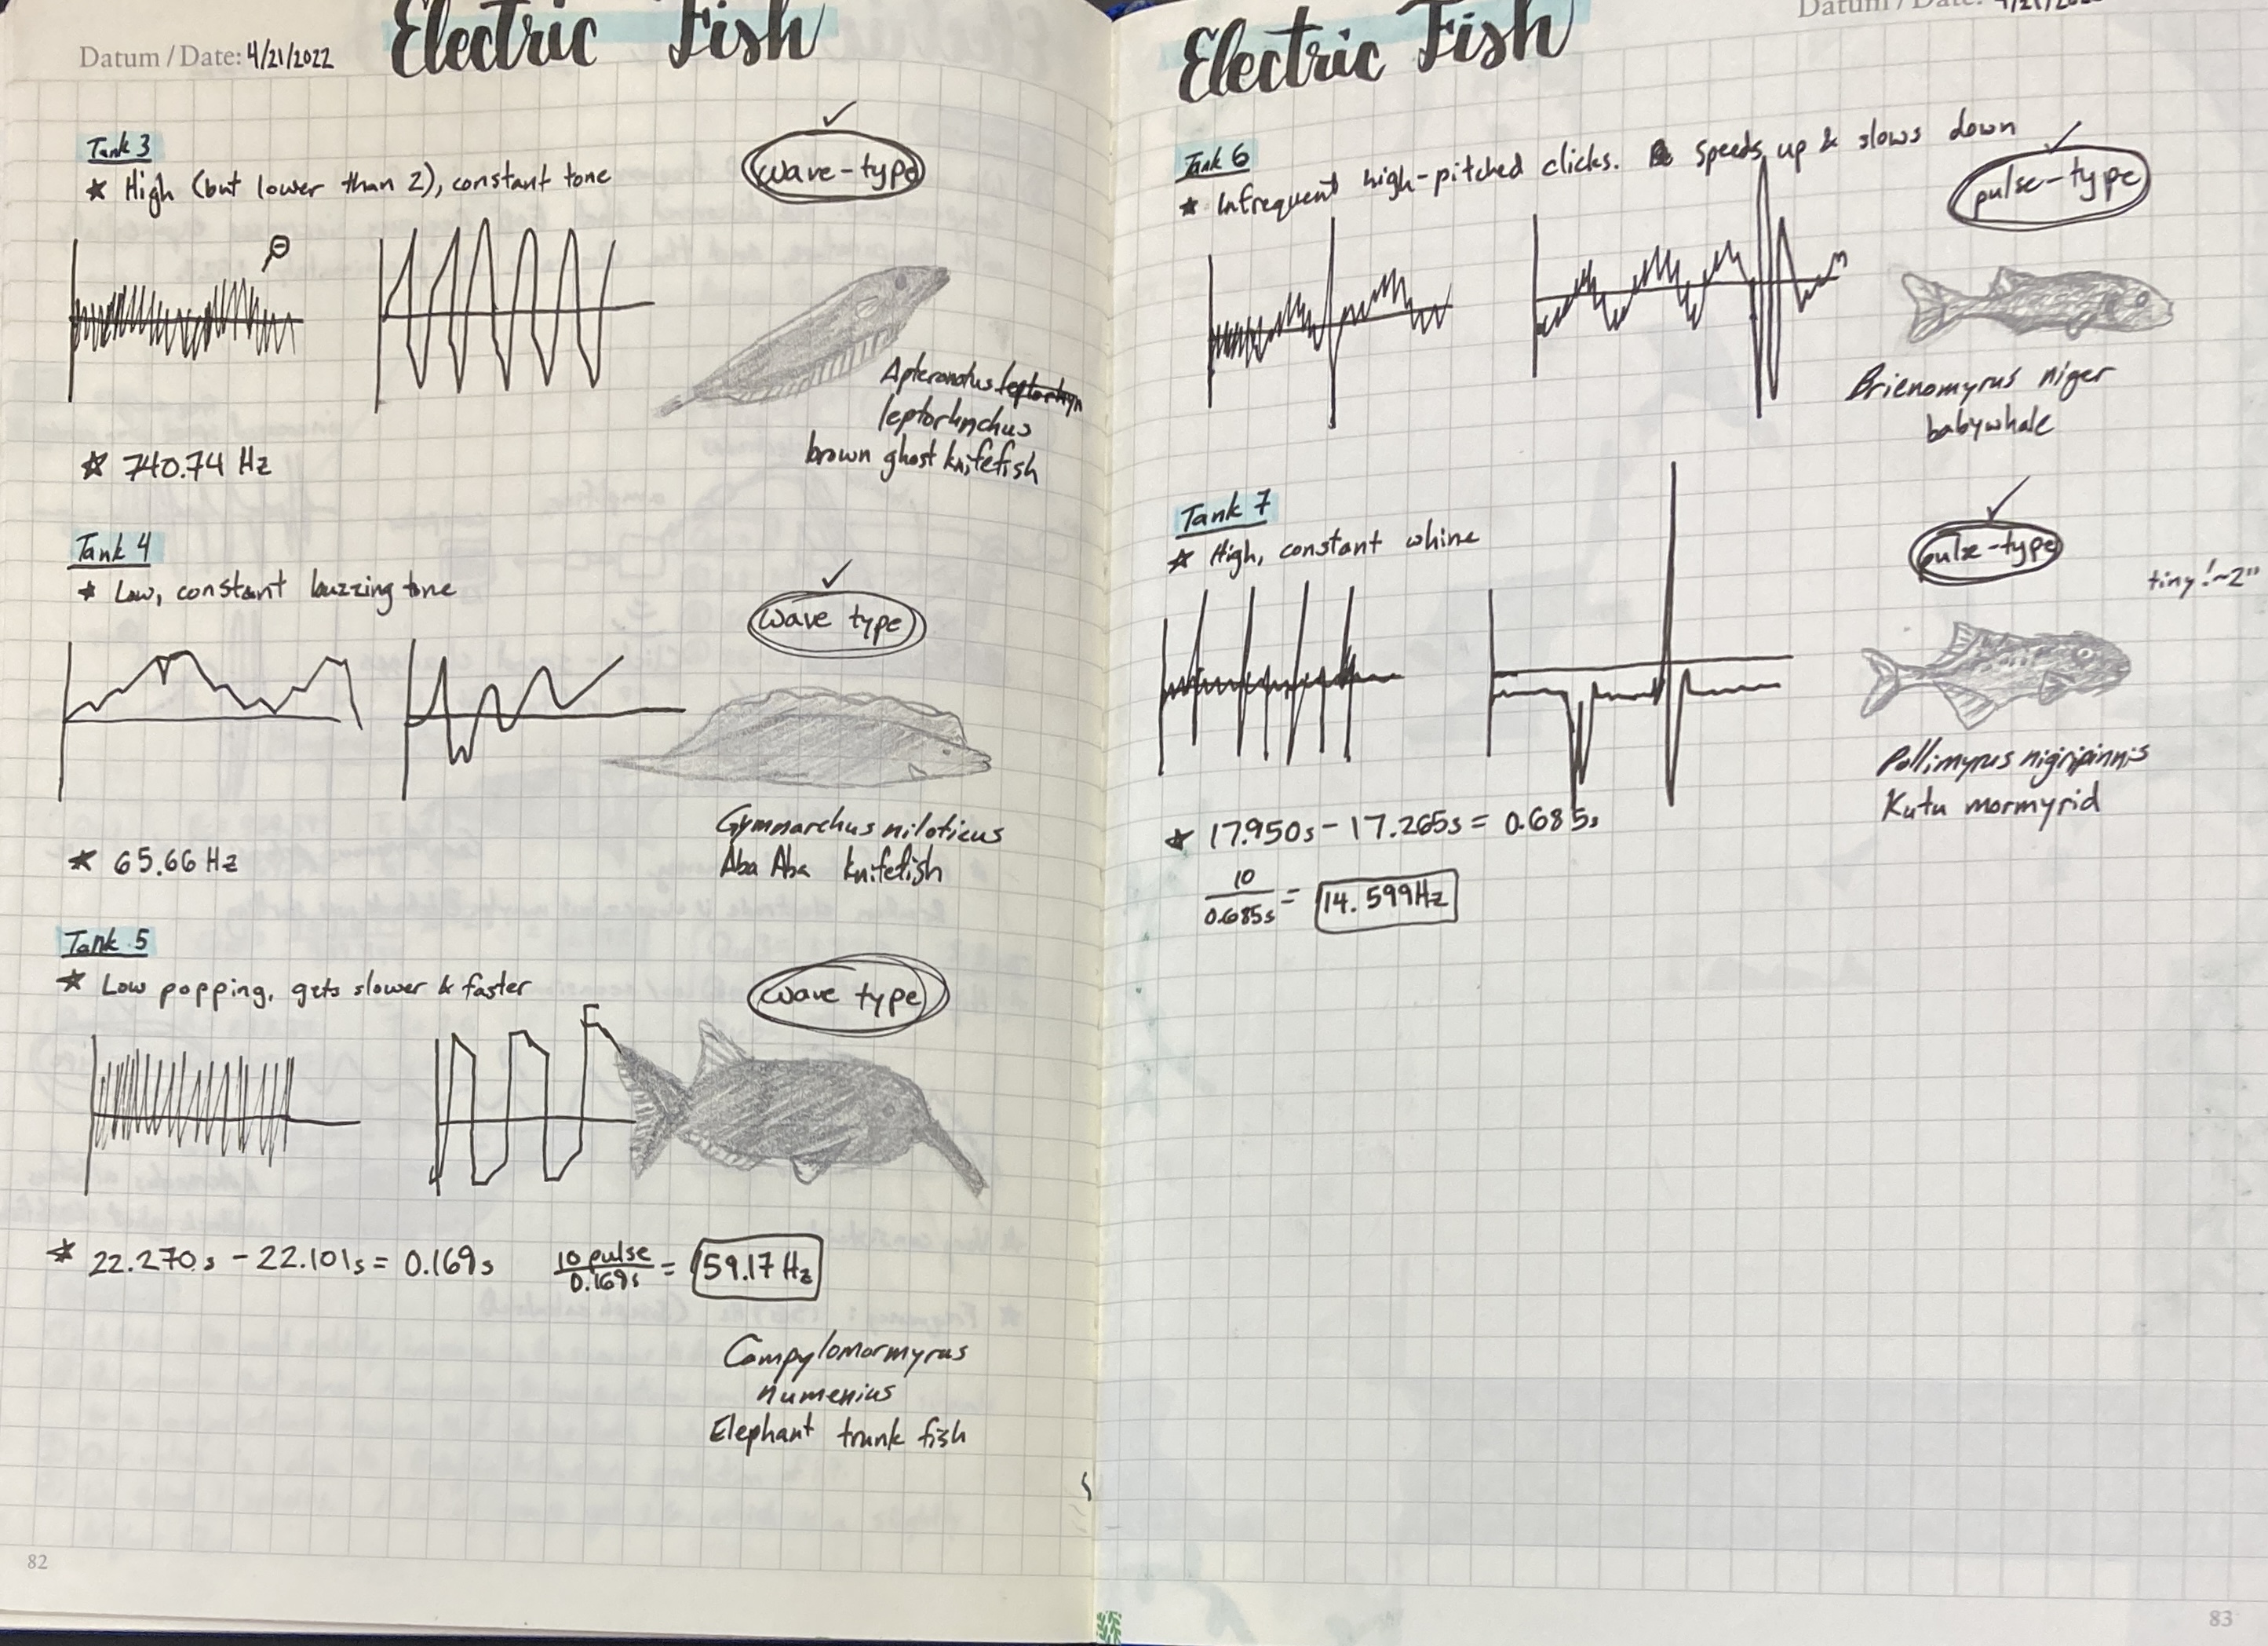 Datum / Date: 4/21/2022
Electric Fish
Tank 3
★ High (but lower than 2), constant tone
wave-type
✓
Apteronotus
leptorhynchus
brown ghost knifefish
★ 740.74 Hz
Tank 4
★ Low, constant buzzing tone
✓
wave type
Gymnarchus niloticus
Aba Aba knifefish
★ 65.66 Hz
Tank 5
★ Low popping, gets slower & faster
wave type
★ 22.270s - 22.101s = 0.169s
10 pulse / 0.169s = 59.17 Hz
Campylomormyrus
numenius
Elephant trunk fish
82
Datum / Date:
Electric Fish
Tank 6
★ Infrequent high-pitched clicks. Speeds up & slows down
✓
pulse-type
Brienomyrus niger
babywhale
Tank 7
★ High, constant whine
✓
pulse-type
tiny! ~2"
Pollimyrus nigripinnis
Kutu mormyrid
★ 17.950s - 17.265s = 0.685s
10 / 0.685s = 14.599Hz
83